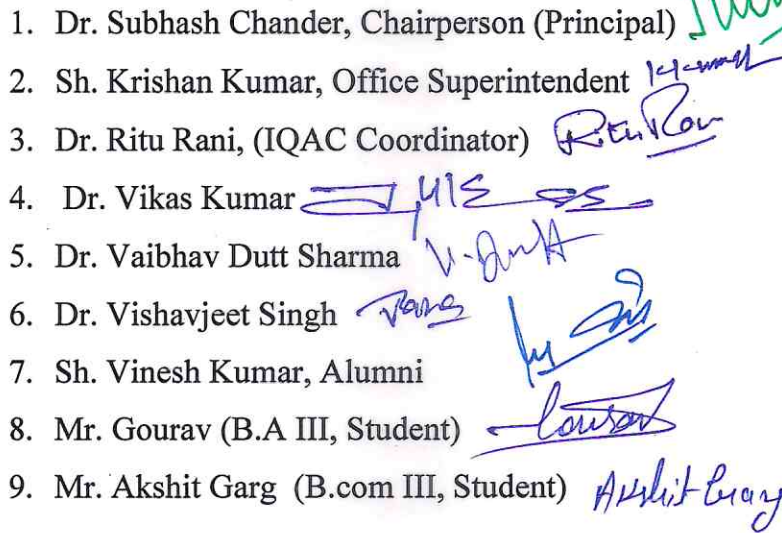 1. Dr. Subhash Chander, Chairperson (Principal)
2. Sh. Krishan Kumar, Office Superintendent
3. Dr. Ritu Rani, (IQAC Coordinator) Ritu Rani
4. Dr. Vikas Kumar
5. Dr. Vaibhav Dutt Sharma V. Dutt
6. Dr. Vishavjeet Singh
7. Sh. Vinesh Kumar, Alumni
8. Mr. Gourav (B.A III, Student) Gourav
9. Mr. Akshit Garg (B.com III, Student) Akshit Garg